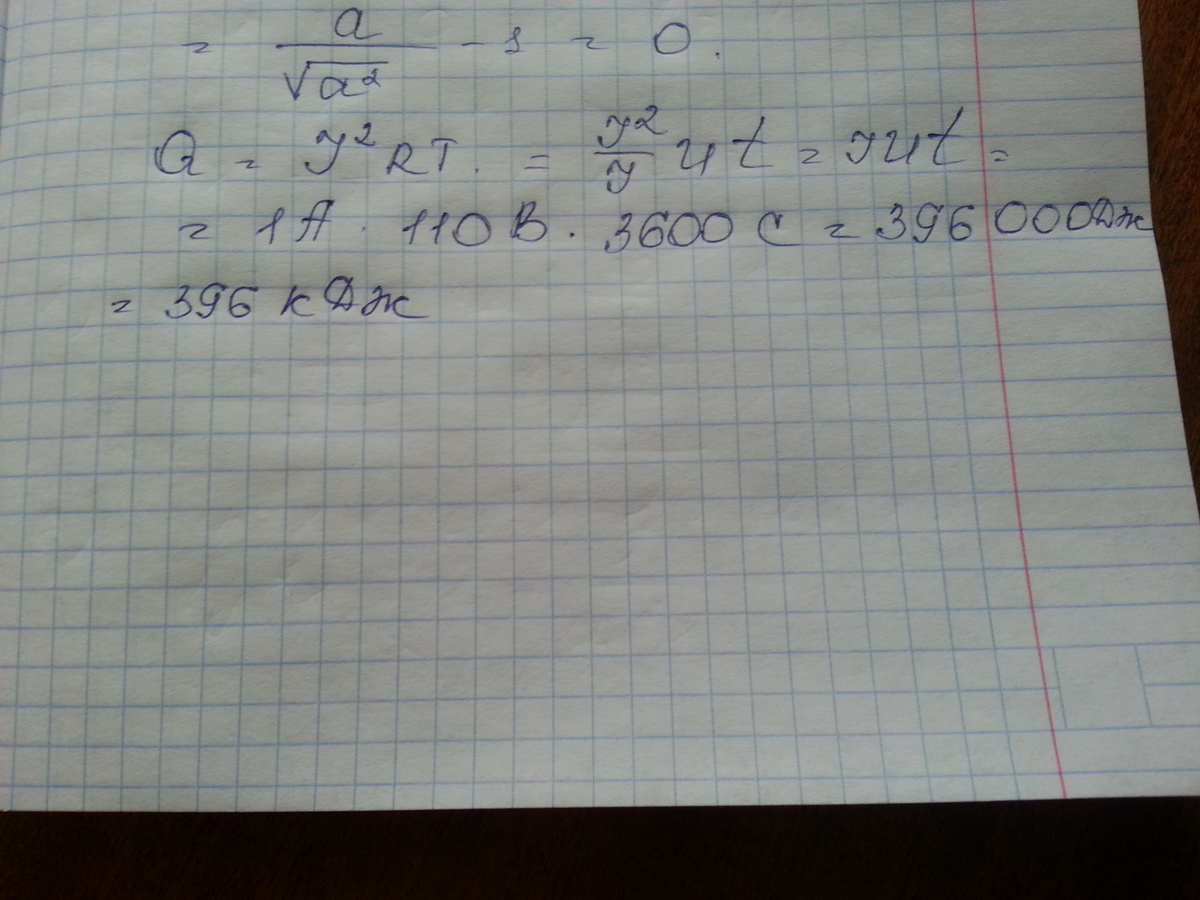 = a/√a² - 1 = 0.
Q = I²RT. = I²/I Ut = IUt =
= 1А · 110В · 3600 с = 396 000Дж
= 396 кДж